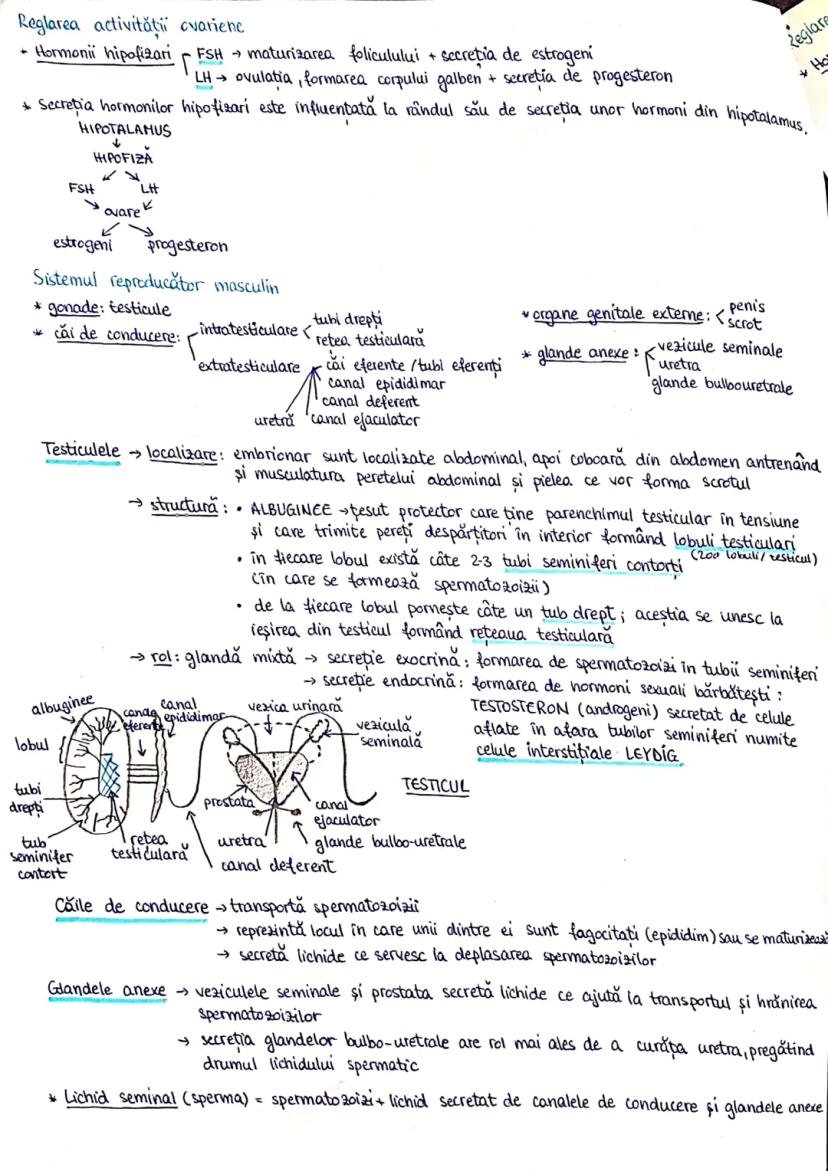 Reglarea activității ovariene
* Hormonii hipofizari
FSH → maturizarea foliculului + secreția de estrogeni
LH → ovulația, formarea corpului galben + secreția de progesteron
* Secreția hormonilor hipofizari este influențată la rândul său de secreția unor hormoni din hipotalamus.
HIPOTALAMUS
↓
HIPOFIZĂ
↙ ↘
FSH LH
↘ ovare ↙
↙ ↘
estrogeni progesteron
Sistemul reproducător masculin
* gonade: testicule
* căi de conducere:
intratesticulare
tubi drepți
rețea testiculară
extratesticulare
căi eferente / tubi eferenți
canal epididimar
canal deferent
uretră canal ejaculator
* organe genitale externe:
penis
scrot
* glande anexe:
vezicule seminale
uretra
glande bulbouretrale
Testiculele → localizare: embrionar sunt localizate abdominal, apoi coboară din abdomen antrenând
și musculatura peretelui abdominal și pielea ce vor forma scrotul
→ structură: • ALBUGINEE → țesut protector care ține parenchimul testicular în tensiune
și care trimite pereți despărțitori în interior formând lobuli testiculari
(200 lobuli/testicul)
• în fiecare lobul există câte 2-3 tubi seminiferi contorți
(în care se formează spermatozoizii)
• de la fiecare lobul pornește câte un tub drept; aceștia se unesc la
ieșirea din testicul formând rețeaua testiculară
→ rol: glandă mixtă → secreție exocrină: formarea de spermatozoizi în tubii seminiferi
→ secreție endocrină: formarea de hormoni sexuali bărbătești:
TESTOSTERON (androgeni) secretat de celule
aflate în afara tubilor seminiferi numite
celule interstițiale LEYDIG
albuginee
lobul
tubi
drepți
tub
seminifer
contort
canale
eferente
canal
epididimar
rețea
testiculară
vezica urinară
veziculă
seminală
prostata
uretra
canal deferent
canal
ejaculator
glande bulbo-uretrale
TESTICUL
Căile de conducere → transportă spermatozoizii
→ reprezintă locul în care unii dintre ei sunt fagocitați (epididim) sau se maturizează
→ secretă lichide ce servesc la deplasarea spermatozoizilor
Glandele anexe → veziculele seminale și prostata secretă lichide ce ajută la transportul și hrănirea
spermatozoizilor
→ secreția glandelor bulbo-uretrale are rol mai ales de a curăța uretra, pregătind
drumul lichidului spermatic
* Lichid seminal (sperma) = spermatozoizi + lichid secretat de canalele de conducere și glandele anexe